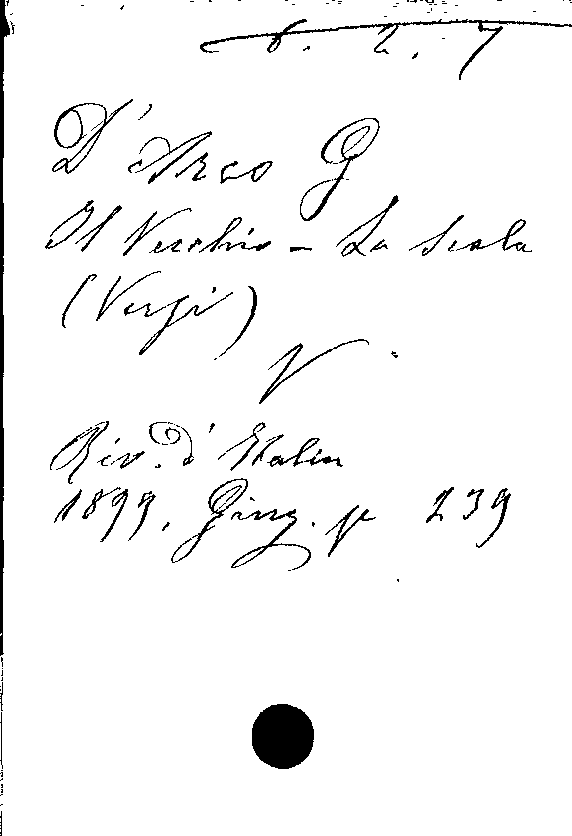 6. 2. 7
D'Arco G
Il Vecchio - La Scala
(Versi)
V
Riv. d'Italia
1899, Giug. p 239